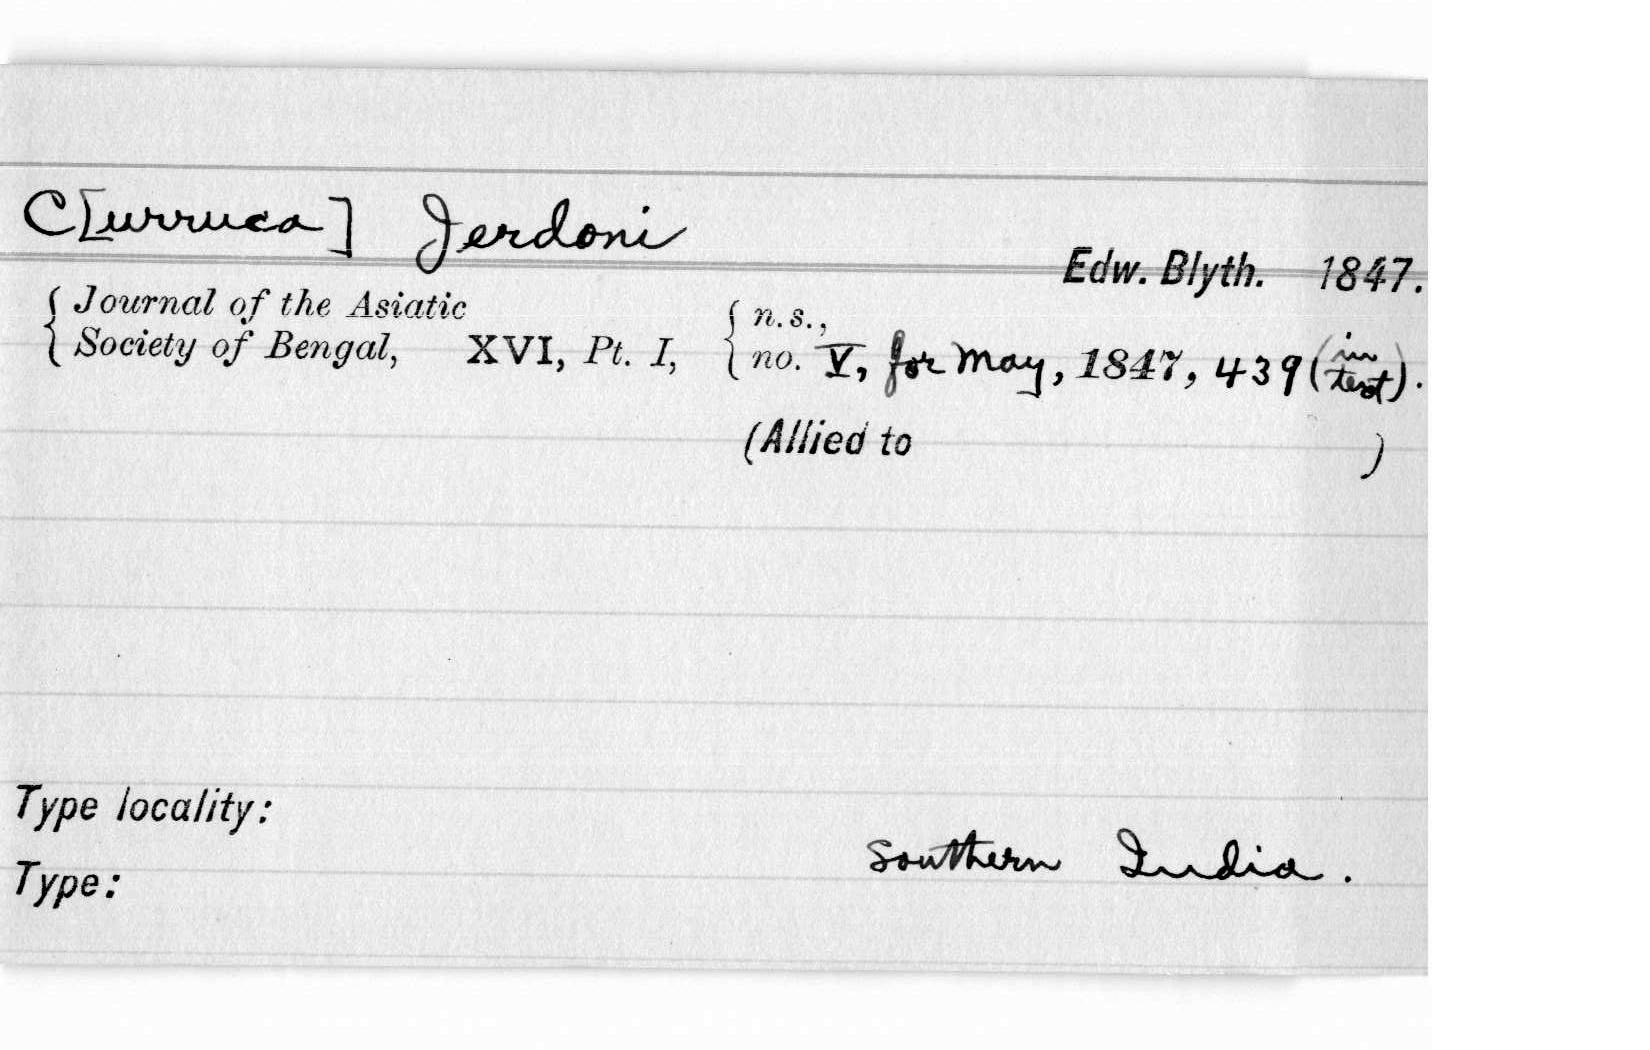 C[urruca] Jerdoni
Edw. Blyth. 1847.
{ Journal of the Asiatic Society of Bengal, XVI, Pt. I, { n.s., no. V, for May, 1847, 439 (in text).
(Allied to )
Type locality:
Southern India.
Type: